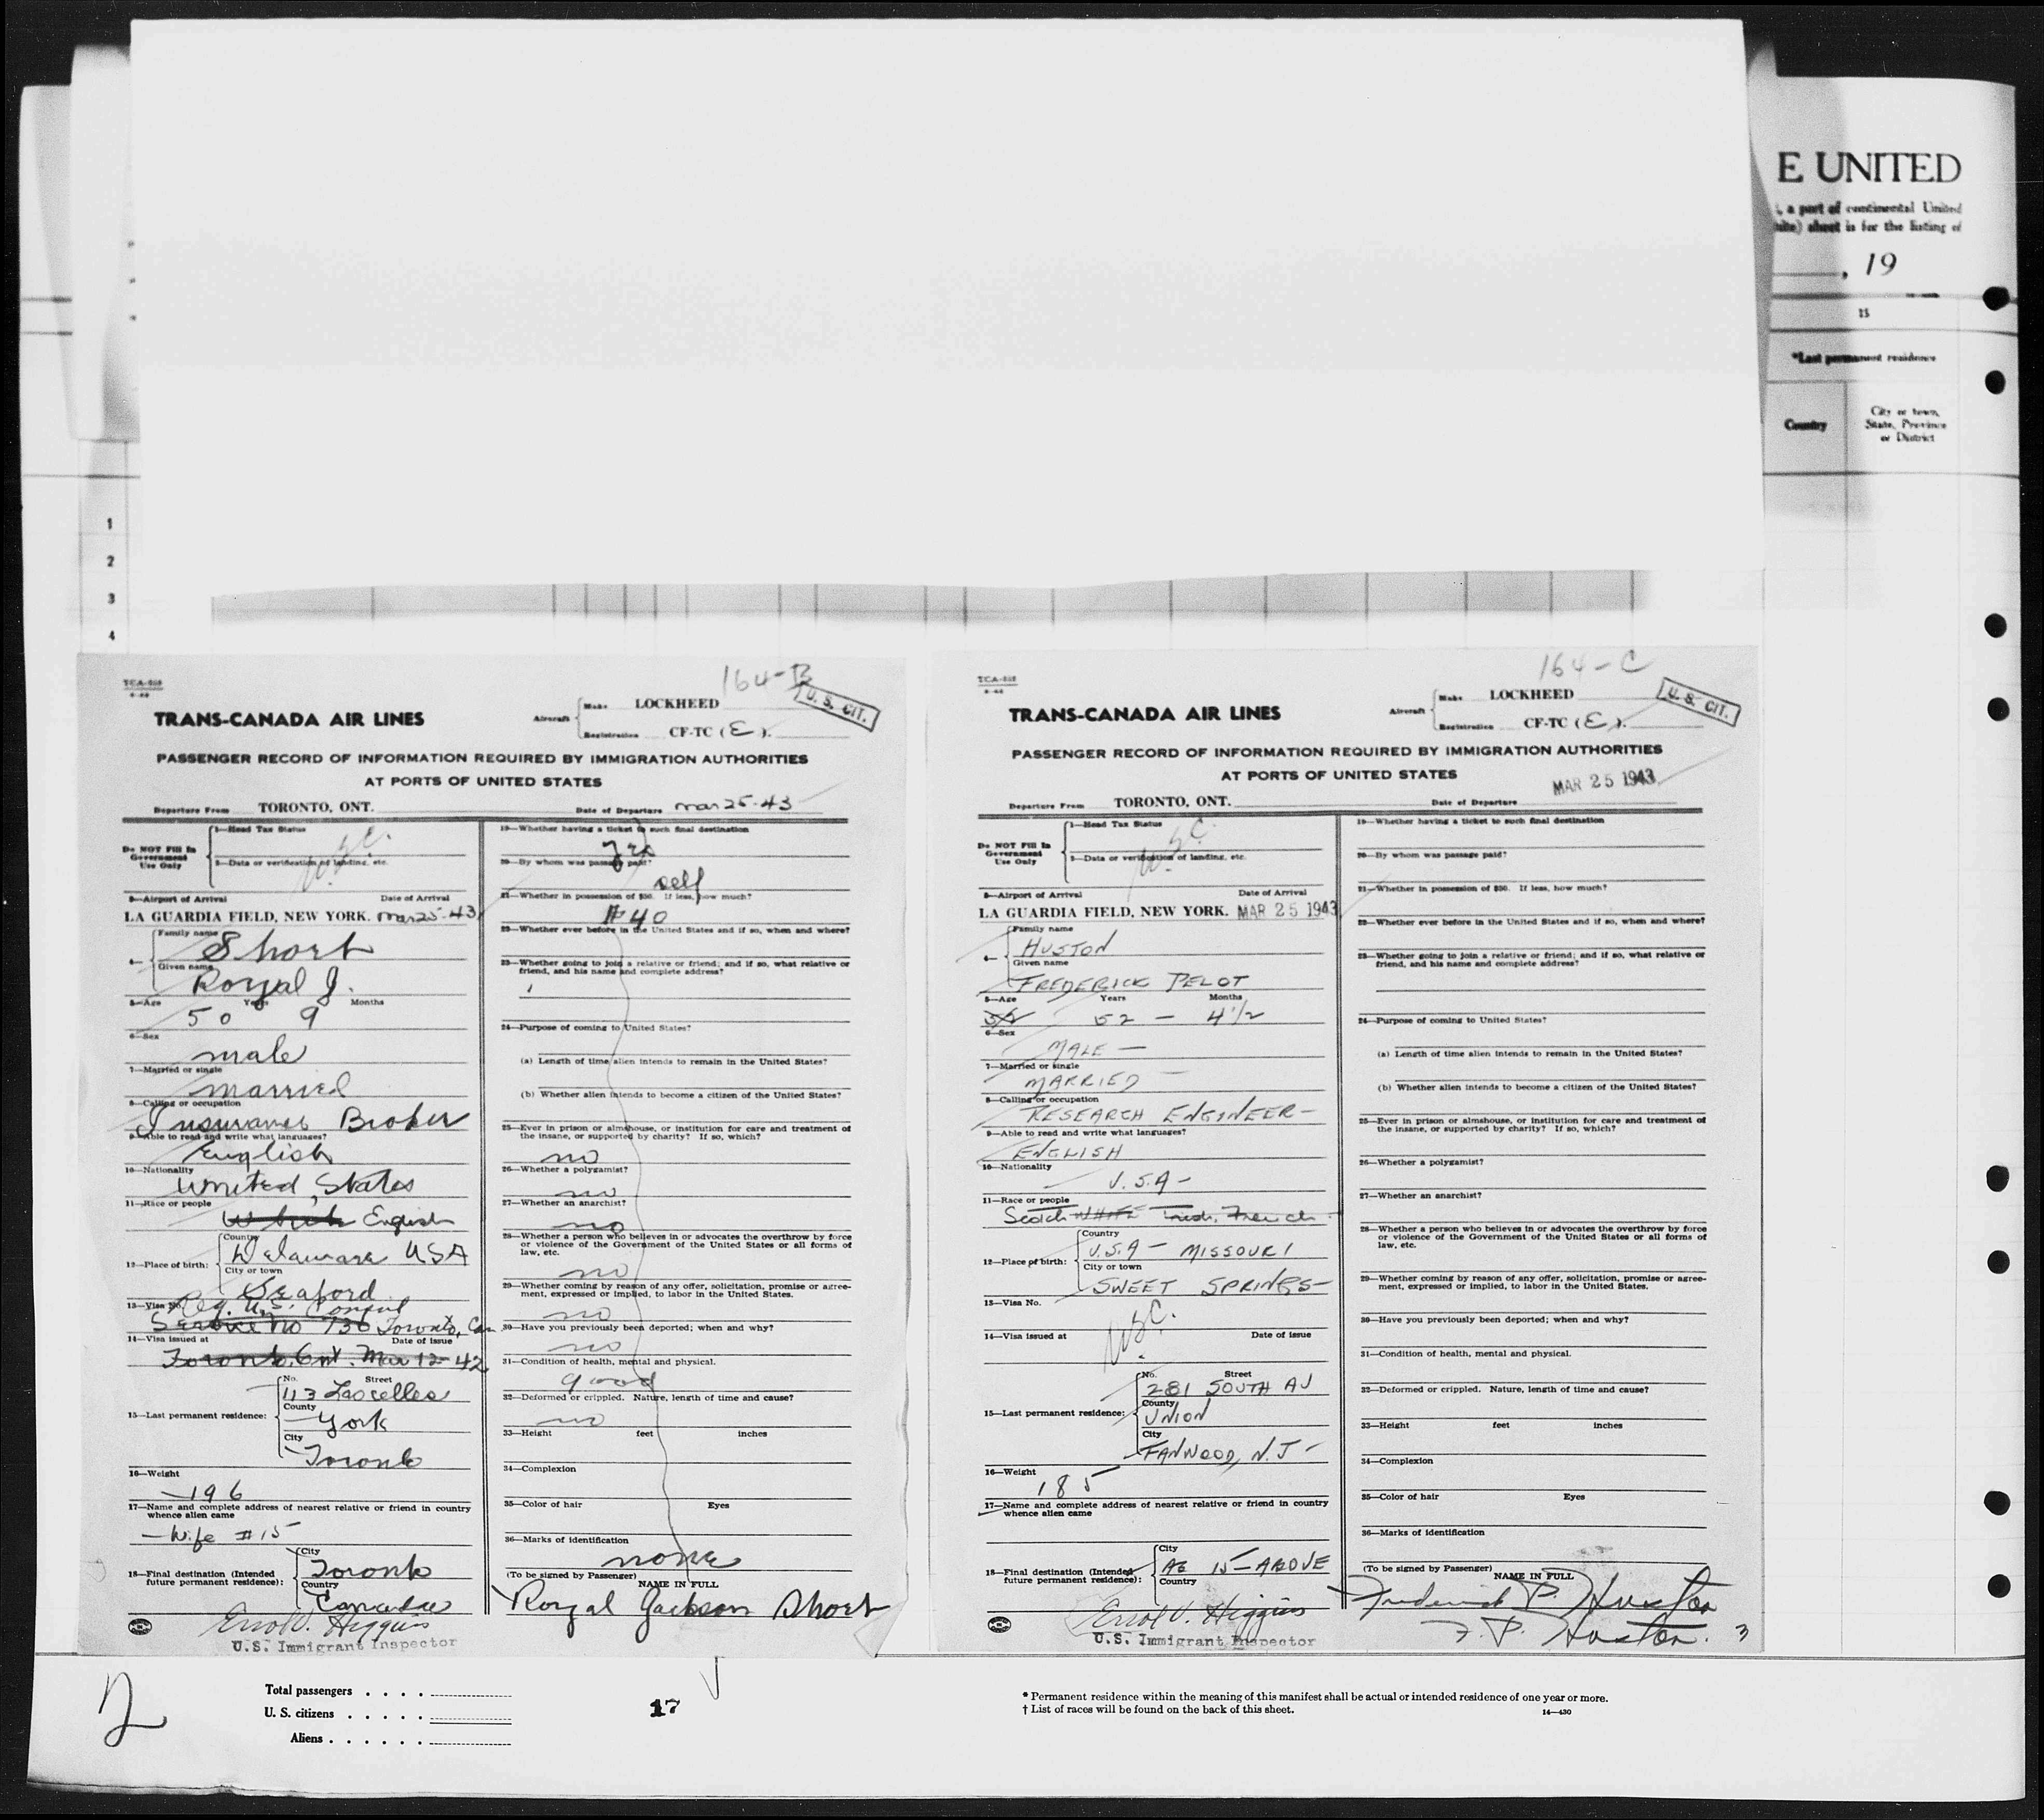 E UNITED
, a part of continental United
sheet is for the listing of
, 19
15
*Last permanent residence
Country
City or town,
State, Province
or District
1
2
3
4
164-B
TCA-
U. S. CIT.
TRANS-CANADA AIR LINES
Aircraft
Make LOCKHEED
Registration CF-TC (E).
PASSENGER RECORD OF INFORMATION REQUIRED BY IMMIGRATION AUTHORITIES
AT PORTS OF UNITED STATES
Departure From TORONTO, ONT.
Date of Departure Mar 25-43
Do NOT Fill In
Government
Use Only
1—Head Tax Status
USC.
2—Data or verification of landing, etc.
3—Airport of Arrival Date of Arrival
LA GUARDIA FIELD, NEW YORK. Mar 25-43
4—
Family name
Short
Given name
Royal J.
5—Age Years Months
50 9
6—Sex
male
7—Married or single
married
8—Calling or occupation
Insurance Broker
9—Able to read and write what languages?
English
10—Nationality
United States
11—Race or people
White English
12—Place of birth:
Country
Delaware USA
City or town
Seaford
13—Visa No. Reg. U.S. Consul
Service No 736 Toronto, Can
14—Visa issued at Date of issue
Toronto, Ont. Mar 12-42
15—Last permanent residence:
No. Street
113 Lascelles
County
York
City
Toronto
16—Weight
196
17—Name and complete address of nearest relative or friend in country
whence alien came
Wife #15
18—Final destination (Intended
future permanent residence):
City
Toronto
Country
Canada
Errol V. Higgins
U.S. Immigrant Inspector
19—Whether having a ticket to such final destination
Yes
20—By whom was passage paid?
self
21—Whether in possession of $50. If less, how much?
$40
22—Whether ever before in the United States and if so, when and where?
23—Whether going to join a relative or friend; and if so, what relative or
friend, and his name and complete address?
24—Purpose of coming to United States?
(a) Length of time alien intends to remain in the United States?
(b) Whether alien intends to become a citizen of the United States?
25—Ever in prison or almshouse, or institution for care and treatment of
the insane, or supported by charity? If so, which?
no
26—Whether a polygamist?
no
27—Whether an anarchist?
no
28—Whether a person who believes in or advocates the overthrow by force
or violence of the Government of the United States or all forms of
law, etc.
no
29—Whether coming by reason of any offer, solicitation, promise or agree-
ment, expressed or implied, to labor in the United States.
no
30—Have you previously been deported; when and why?
no
31—Condition of health, mental and physical.
good
32—Deformed or crippled. Nature, length of time and cause?
no
33—Height feet inches
34—Complexion
35—Color of hair Eyes
36—Marks of identification
none
(To be signed by Passenger)
NAME IN FULL
Royal Jackson Short
164-C
TCA-
U. S. CIT.
TRANS-CANADA AIR LINES
Aircraft
Make LOCKHEED
Registration CF-TC (E).
PASSENGER RECORD OF INFORMATION REQUIRED BY IMMIGRATION AUTHORITIES
AT PORTS OF UNITED STATES
MAR 25 1943
Departure From TORONTO, ONT.
Date of Departure
Do NOT Fill In
Government
Use Only
1—Head Tax Status
USC.
2—Data or verification of landing, etc.
3—Airport of Arrival Date of Arrival
LA GUARDIA FIELD, NEW YORK. MAR 25 1943
4—
Family name
HUSTON
Given name
FREDERICK PELOT
5—Age Years Months
52 — 4 1/2
6—Sex
MALE —
7—Married or single
MARRIED —
8—Calling or occupation
RESEARCH ENGINEER —
9—Able to read and write what languages?
ENGLISH
10—Nationality
U.S.A —
11—Race or people
Scotch WHITE Irish, French
12—Place of birth:
Country
U.S.A — MISSOURI
City or town
SWEET SPRINGS —
13—Visa No.
USC.
14—Visa issued at Date of issue
15—Last permanent residence:
No. Street
281 SOUTH AV
County
UNION
City
FANWOOD, N.J —
16—Weight
185
17—Name and complete address of nearest relative or friend in country
whence alien came
18—Final destination (Intended
future permanent residence):
City
AS 15—ABOVE
Country
Errol V. Higgins
U.S. Immigrant Inspector
19—Whether having a ticket to such final destination
20—By whom was passage paid?
21—Whether in possession of $50. If less, how much?
22—Whether ever before in the United States and if so, when and where?
23—Whether going to join a relative or friend; and if so, what relative or
friend, and his name and complete address?
24—Purpose of coming to United States?
(a) Length of time alien intends to remain in the United States?
(b) Whether alien intends to become a citizen of the United States?
25—Ever in prison or almshouse, or institution for care and treatment of
the insane, or supported by charity? If so, which?
26—Whether a polygamist?
27—Whether an anarchist?
28—Whether a person who believes in or advocates the overthrow by force
or violence of the Government of the United States or all forms of
law, etc.
29—Whether coming by reason of any offer, solicitation, promise or agree-
ment, expressed or implied, to labor in the United States.
30—Have you previously been deported; when and why?
31—Condition of health, mental and physical.
32—Deformed or crippled. Nature, length of time and cause?
33—Height feet inches
34—Complexion
35—Color of hair Eyes
36—Marks of identification
(To be signed by Passenger)
NAME IN FULL
Frederick P. Huston
F. P. Huston. 3
2
Total passengers . . . .
U. S. citizens . . . . .
Aliens . . . . . .
17
* Permanent residence within the meaning of this manifest shall be actual or intended residence of one year or more.
† List of races will be found on the back of this sheet.
14—430